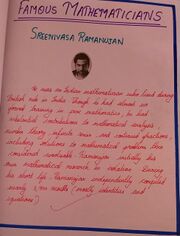 FAMOUS MATHEMATICIANS
SREENIVASA RAMANUJAN
He was an Indian mathematician who lived during
British rule in India. Though he had almost no
formal training in pure mathematics, he had
substantial contributions to mathematical analysis,
number theory, infinite series and continued fractions,
including solutions to mathematical problems then
considered unsolvable. Ramanujan initially his
own mathematical research in isolation. During
his short life, Ramanujan independently compiled
nearly 3,900 results (mostly identities and
equations)